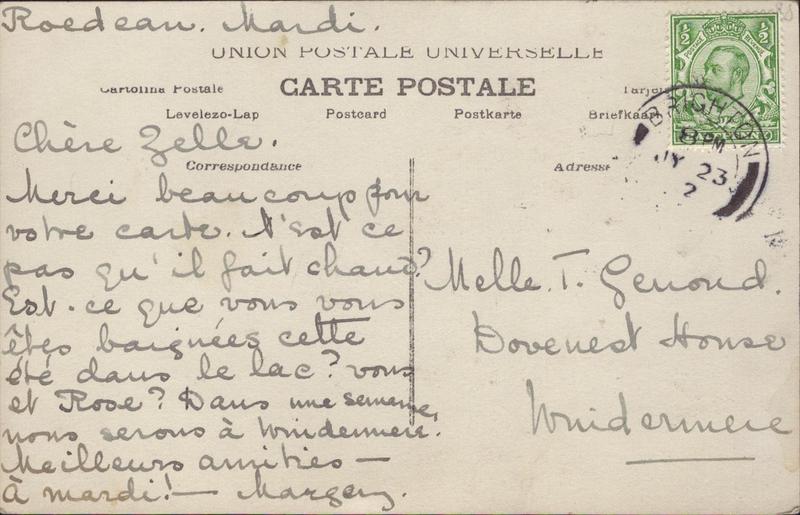 Roedean. Mardi.
UNION POSTALE UNIVERSELLE
CARTE POSTALE
Cartolina Postale
Levelezo-Lap Postcard Postkarte Briefkaart
Correspondance Adresse
½ ½
BRIGHTON
8 PM
JY 23
2
Chère Zelle.
Merci beaucoup pour
votre carte. N'est ce
pas qu'il fait chaud?
Est-ce que vous vous
êtes baignées cette
été dans le lac? vous
et Rose? Dans une semaine,
nous serons à Windermere.
Meilleurs amitiés —
à mardi! — Margery.
Melle. T. Genoud.
Dovenest House
Windermere